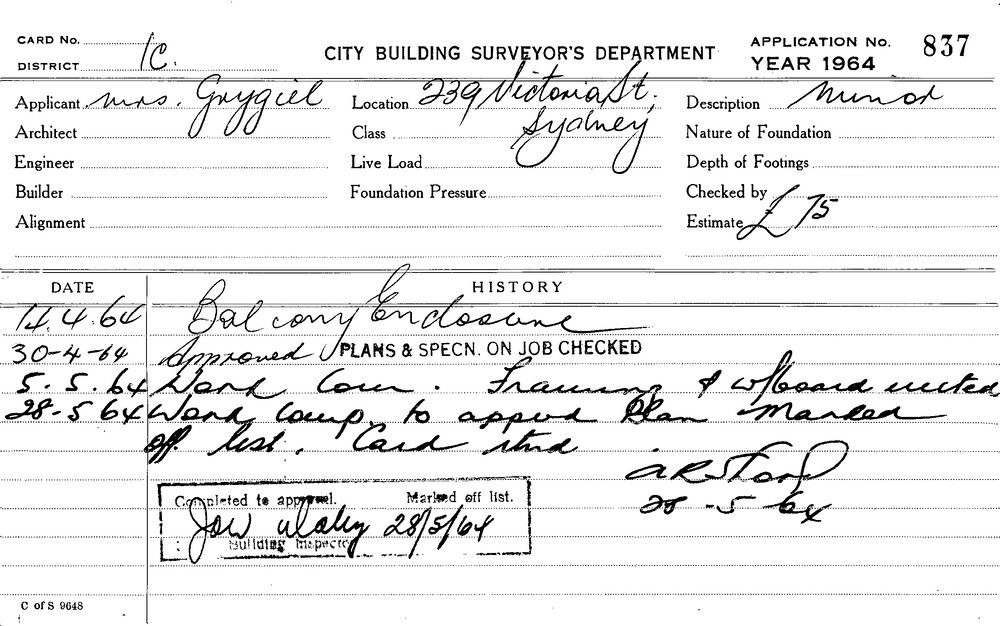 CARD No.
DISTRICT 1C.
CITY BUILDING SURVEYOR'S DEPARTMENT
APPLICATION No. 837
YEAR 1964
Applicant Mrs. Grygiel
Location 239 Victoria St,
Sydney
Description Minor
Architect
Class
Nature of Foundation
Engineer
Live Load
Depth of Footings
Builder
Foundation Pressure
Checked by
Alignment
Estimate £75
DATE HISTORY
14.4.64 Balcony Enclosure
30-4-64 Approved PLANS & SPECN. ON JOB CHECKED
5.5.64 Work Com. Framing & w/board
28-5 64 Work Comp to appvd Plan Marked
off list. Card
28-5-64
Completed to approval. Marked off list.
28/5/64
Building Inspector
C of S 9648